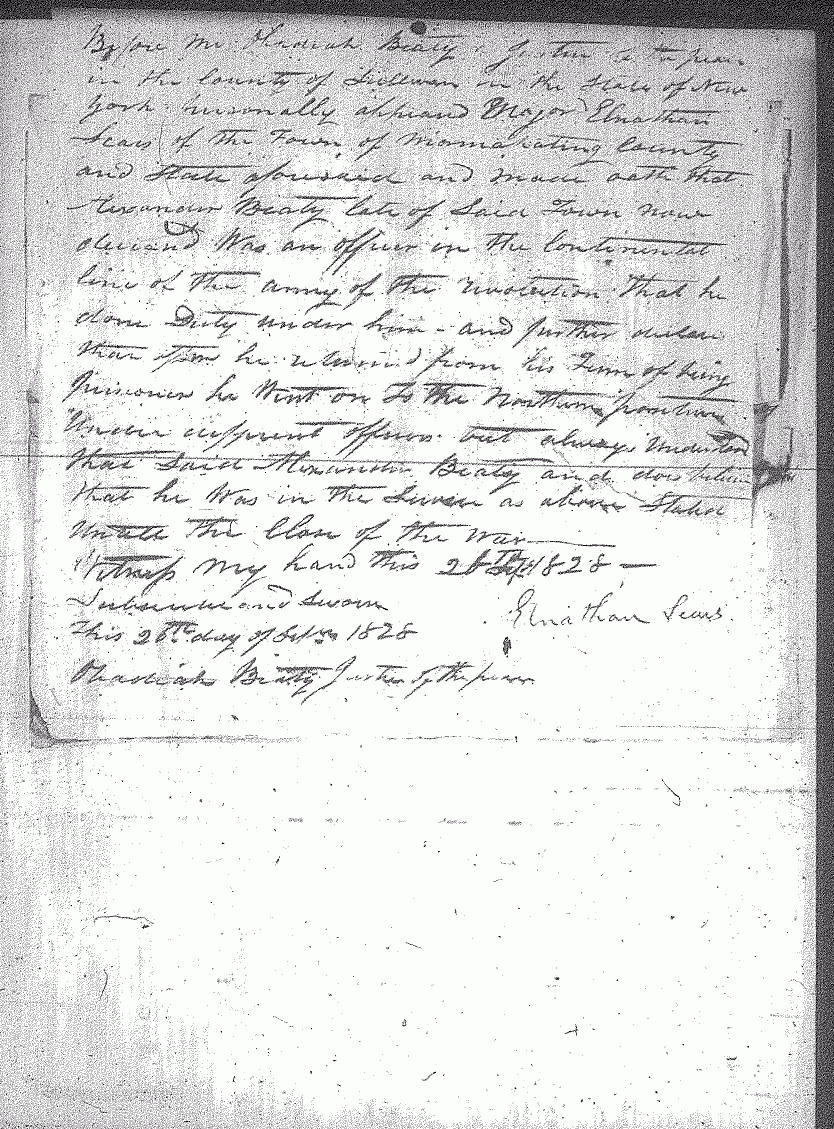 Before me Obadiah Beaty a Justice
in the County of Sullivan in the State of New
York Personally appeard Major Elnathan
Sears of the Town of Mamakating County
and State aforesaid and made oath that
Alexander Beaty late of Said Town now
deceasd Was an officer in the Continental
line of the army of the revolution that he
done Duty under him - and further
that he returned from his Time of being
Prisoner he Went on To the Northern
Under different officers but always Understood
that Said Alexander Beaty and does
that he Was in the as above Stated
the Close of the War
Witness my hand this 26th 1828
Elnathan Sears
and Sworn
This 26th day of 1828
Obadiah Beaty Justice of the peace